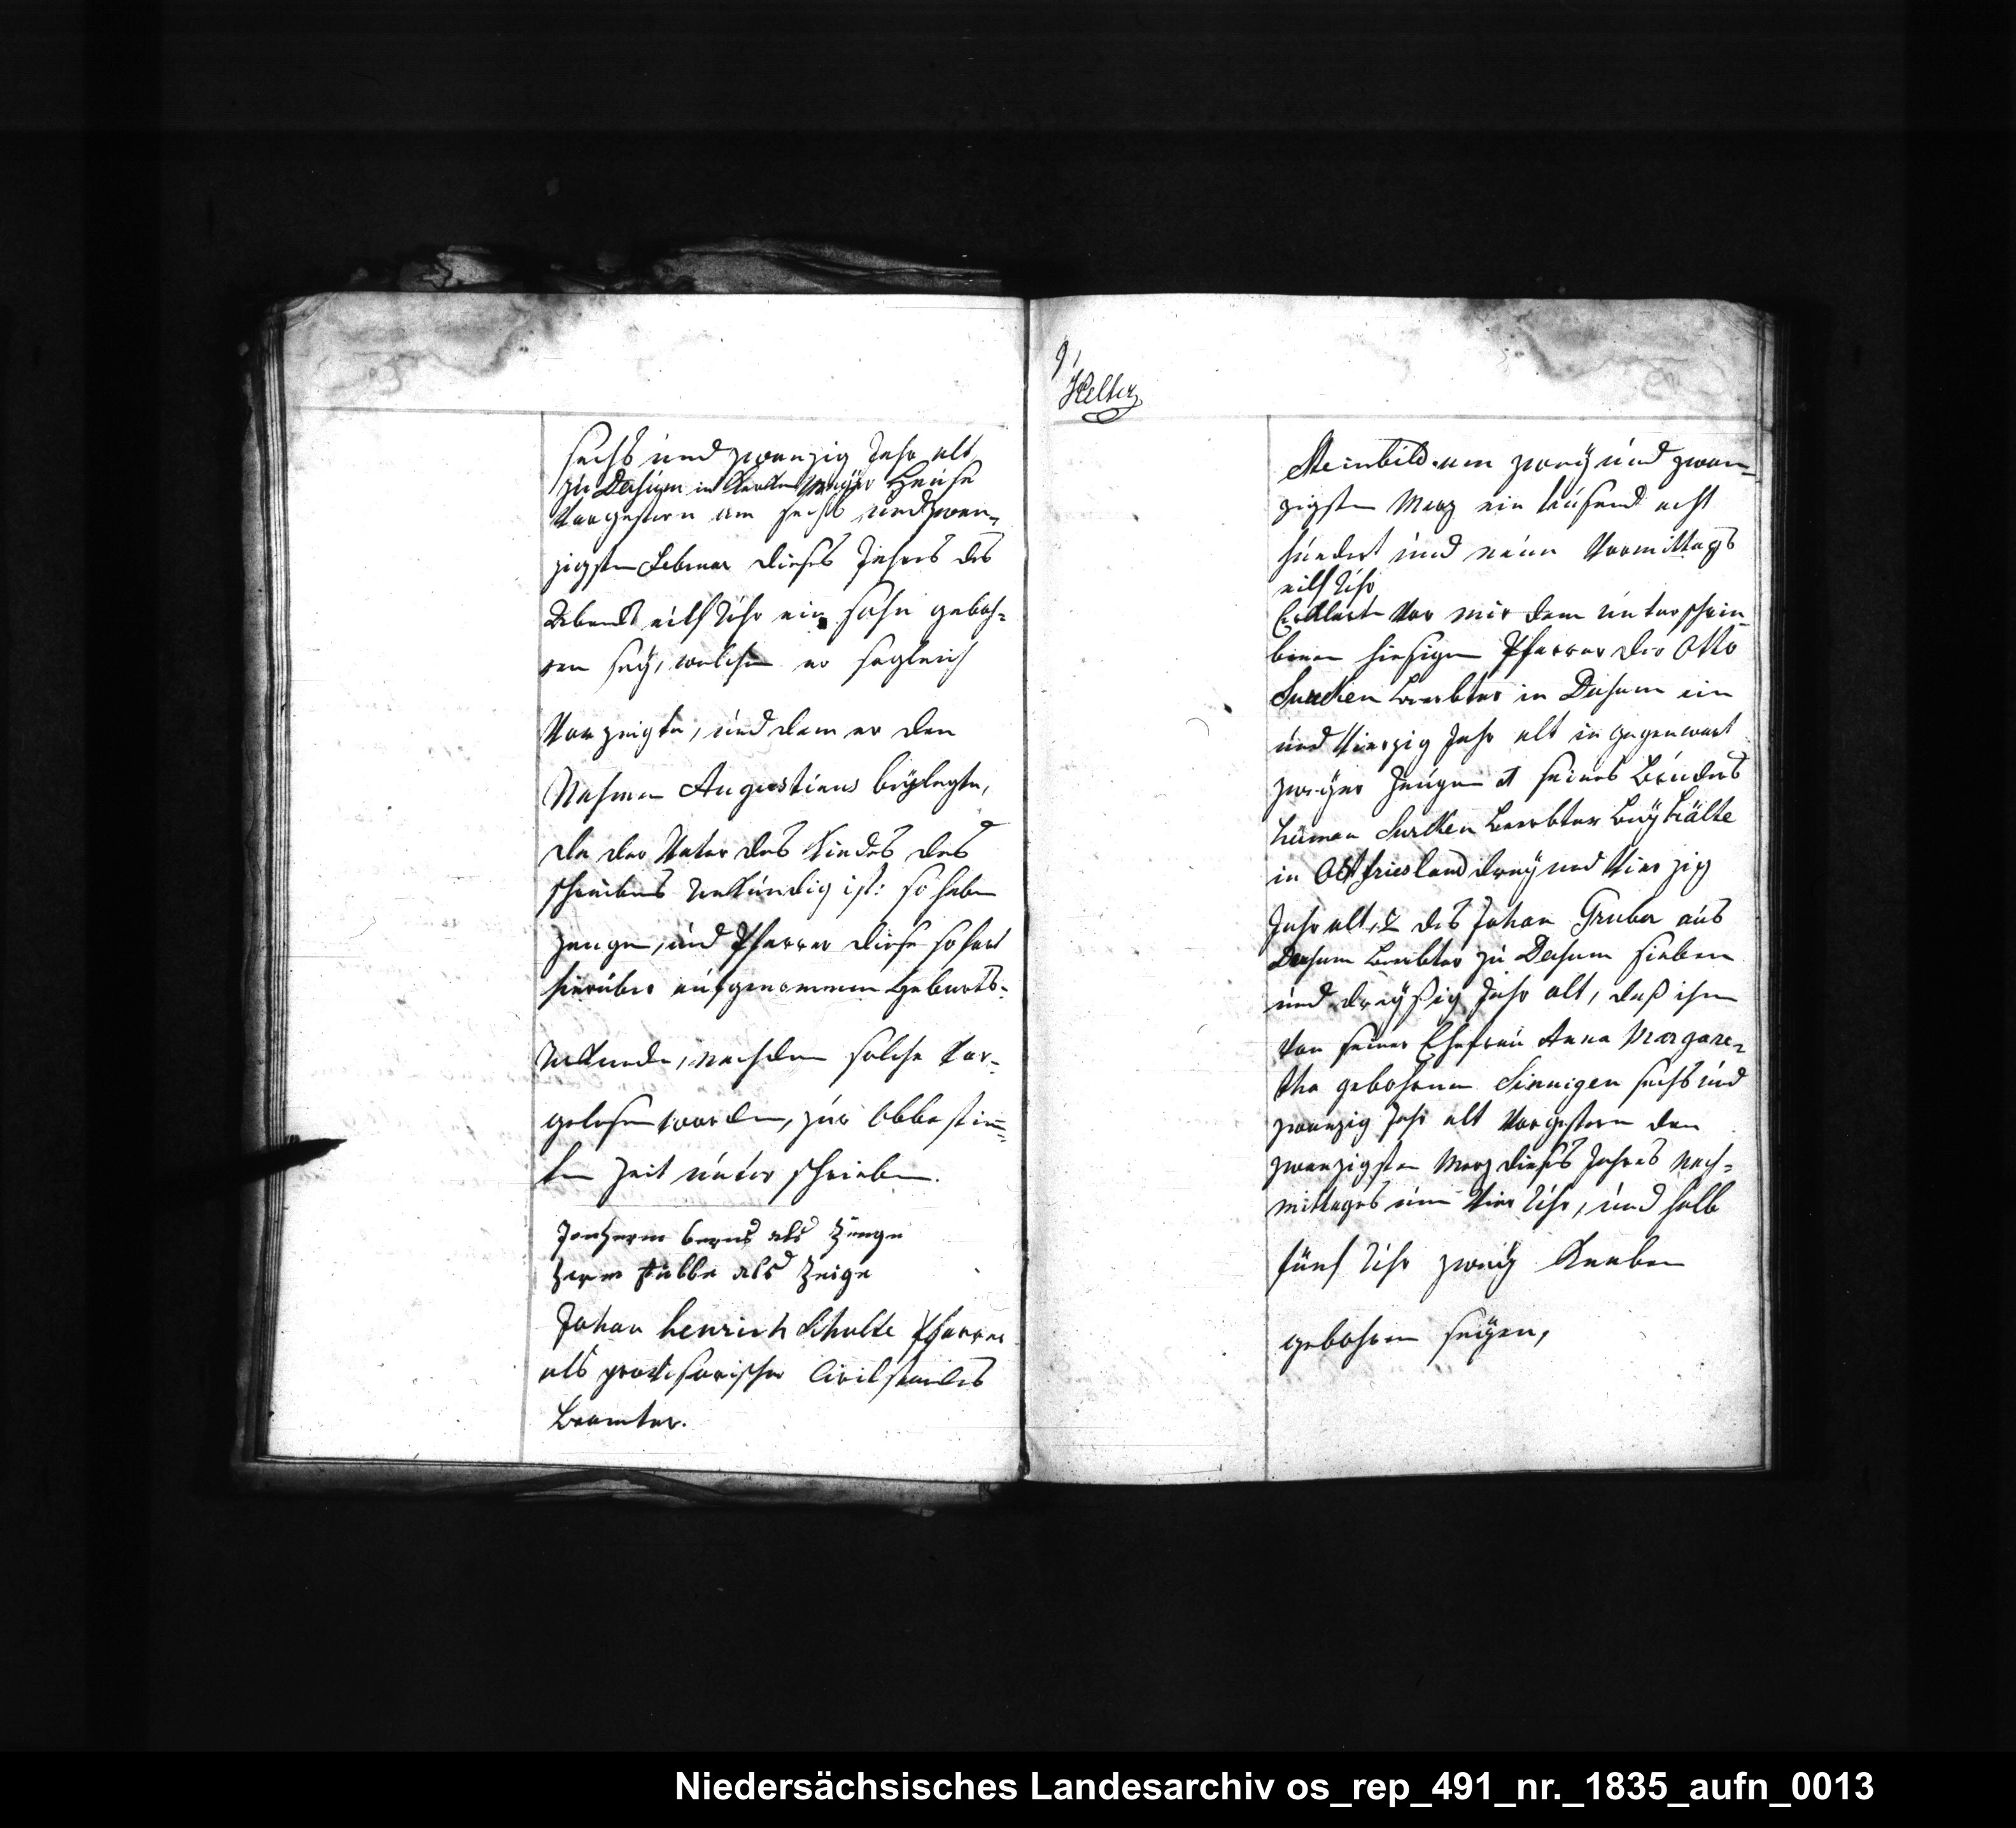 sechs und zwanzig Jahr alt
zu Dasum in Hause
Vorgestern am sechs und zwan=
zigsten Februar dieses Jahres des
Abends eilf Uhr ein Sohn geboh=
ren sey, welchen er sogleich
Vorzeigte, und dem er den
Nahmen Augustinus beylegte,
da der Vater des Kindes des
schreibens unkündig ist: so haben
Zeugen, und Pfarrer diese sofort
hierüber aufgenommene Geburts=
urkunde, nachdem solche Vor=
gelesen worden, zur Obbestim=
ten Zeit unterschrieben.
Janherm berns als Zeuge
herm als Zeige
Johan henrich Schulte Pfarrer
als provisorischer Civilstandes
Beamter.
9,
Steinbild am zwey und zwan=
zigsten Merz ein tausend acht
hundert und neun Vormittags
eilf Uhr
Erklärte Vor mir dem unterschrie=
benen hiesigen Pfarrer der Otto
Beerbter in Dasum ein
und Vierzig Jahr alt in gegenwart
zweyer Zeugen a seines Bruders
Beerbter
in Ostfriesland drey und Vierzig
Jahr alt, & des Johan Gruber aus
Dasum Beerbter zu Dasum sieben
und dreyßig Jahr alt, daß ihm
Von seiner Ehefrau Anna Margare=
tha gebohrnen Sinnigen sechs und
zwanzig Jahr alt Vorgestern den
zwanzigsten Merz dieses Jahres nach=
mittages um Vier Uhr, und halb
fünf Uhr zwey Knaben
gebohren seyen,
Niedersächsisches Landesarchiv os_rep_491_nr._1835_aufn_0013